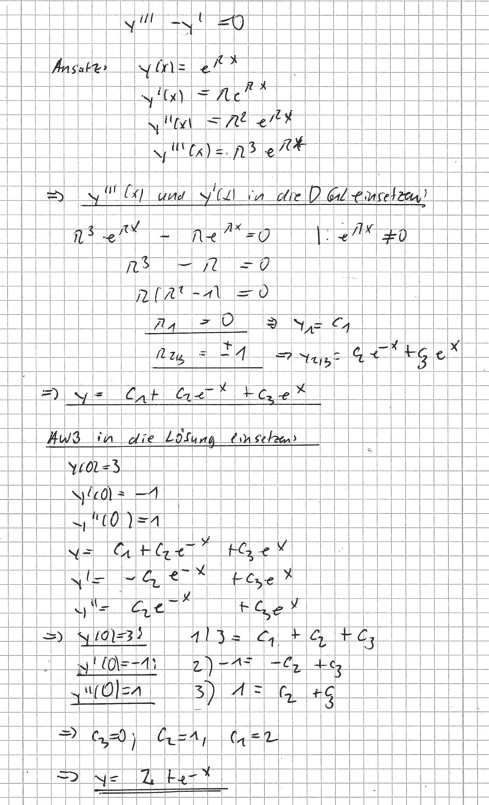 y''' - y' = 0
Ansatz: y(x) = e^{rx}
y'(x) = r e^{rx}
y''(x) = r² e^{rx}
y'''(x) = r³ e^{rx}
=> y'''(x) und y'(x) in die DGL einsetzen:
r³ e^{rx} - r e^{rx} = 0 |: e^{rx} ≠ 0
r³ - r = 0
r(r² - 1) = 0
r₁ = 0 => y₁ = C₁
r₂,₃ = ±1 => y₂,₃ = C₂ e^{-x} + C₃ e^x
=> y = C₁ + C₂ e^{-x} + C₃ e^x
AWB in die Lösung einsetzen:
y(0) = 3
y'(0) = -1
y''(0) = 1
y = C₁ + C₂ e^{-x} + C₃ e^x
y' = -C₂ e^{-x} + C₃ e^x
y'' = C₂ e^{-x} + C₃ e^x
=> y(0)=3: 1) 3 = C₁ + C₂ + C₃
y'(0)=-1: 2) -1 = -C₂ + C₃
y''(0)=1 3) 1 = C₂ + C₃
=> C₃=0; C₂=1, C₁=2
=> y = 2 + e^{-x}